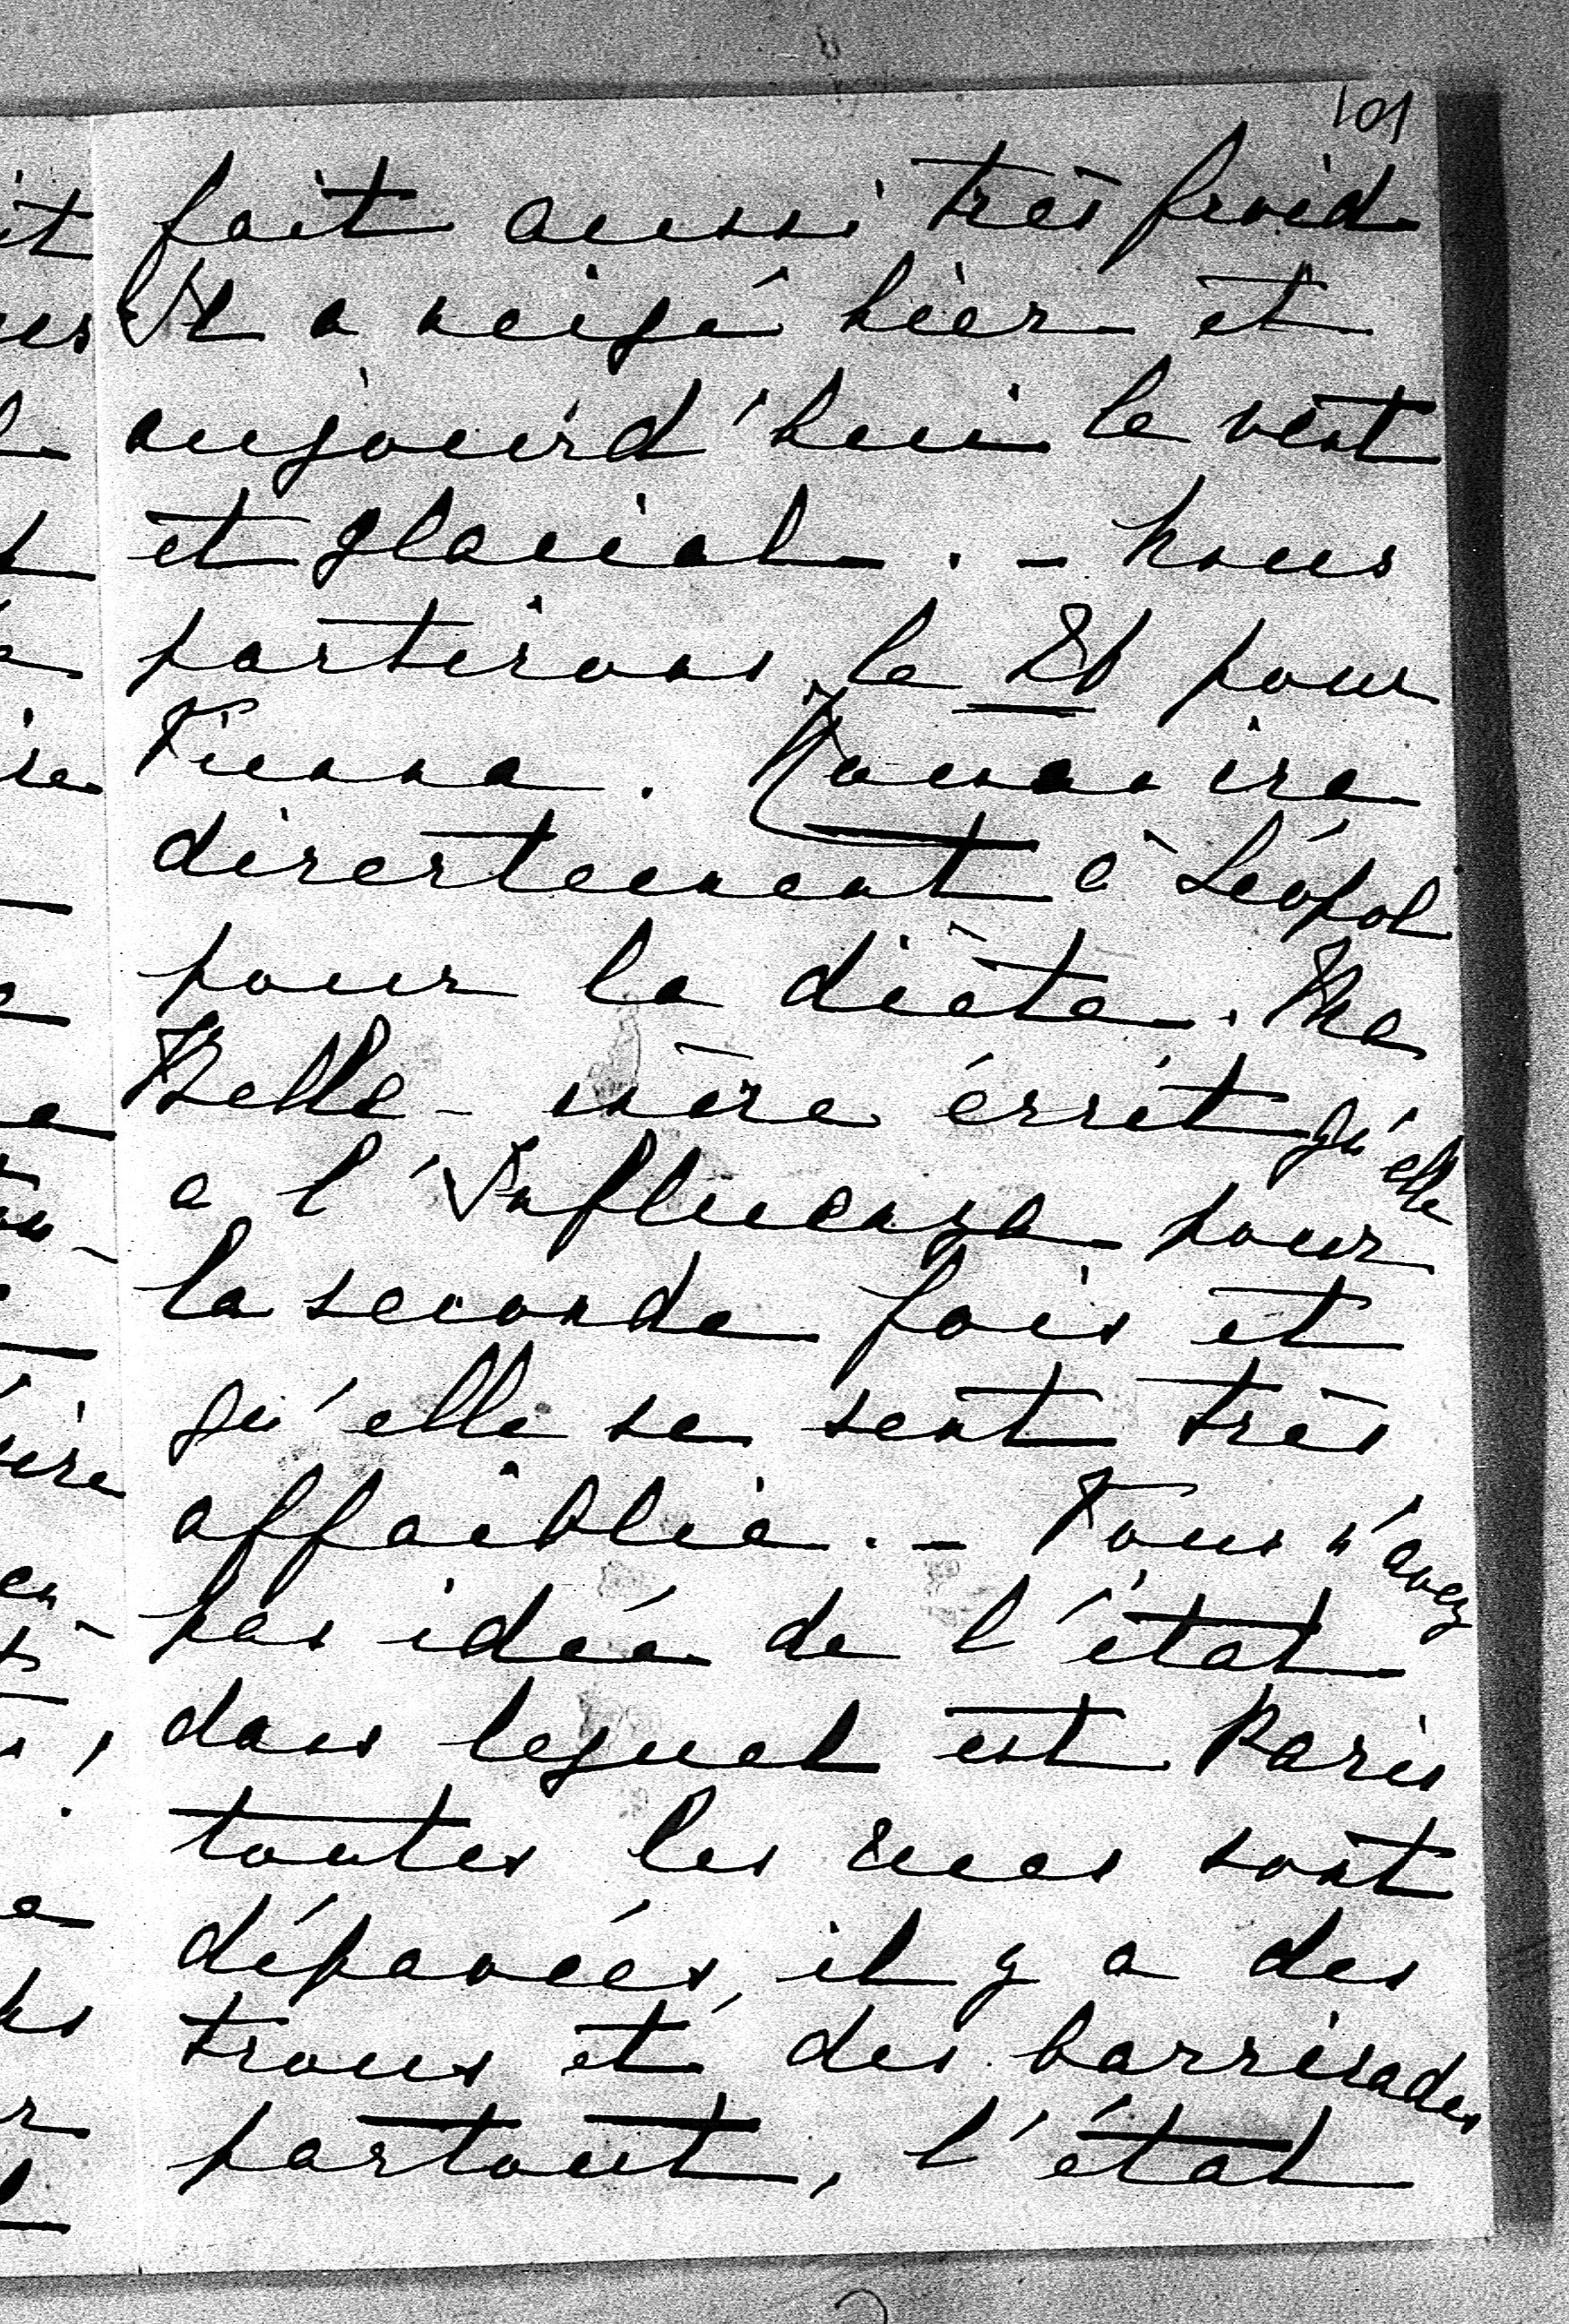 101
fait aussi très froid
Il a neigé hier et
aujourd'hui le vent
et glacial. - Nous
partirons le 26 pour
Vienna. Roman ira
directement à Léopol
pour la diète. Ma
Belle-mère écrit qu'elle
a l'Influenza pour
la seconde fois et
qu'elle se sent très
affaiblie. - Vous n'avez
pas idée de l'état
dans lequel est Paris
toutes les rues sont
dépavées, il y a des
trous et des barricades
partout, l'état